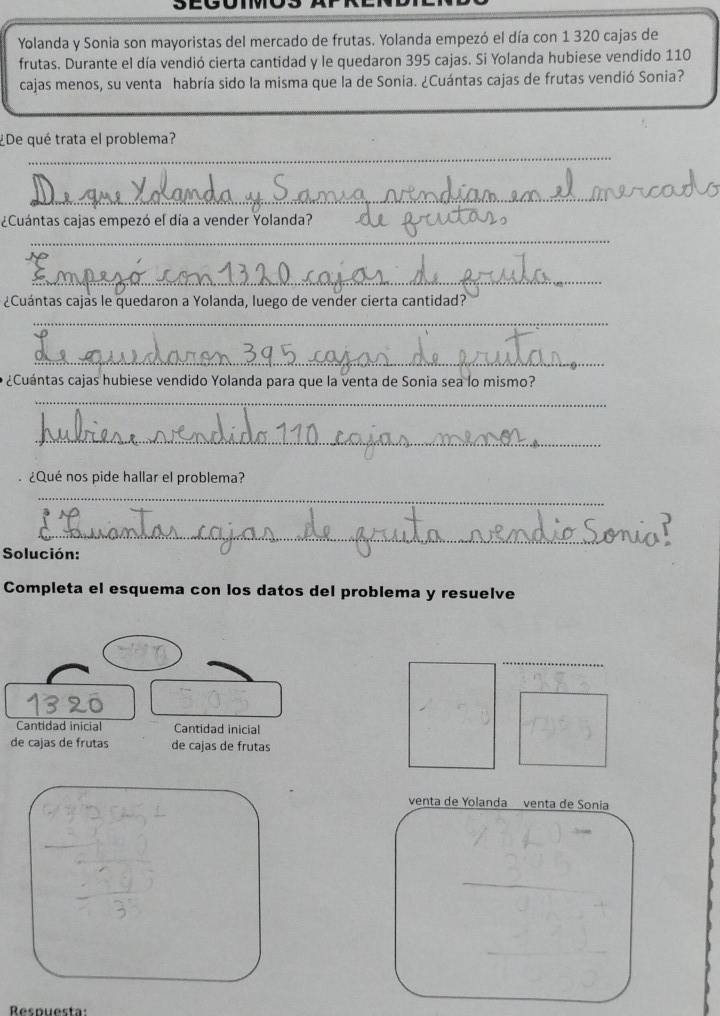 SEGUIMOS APRENDIENDO
Yolanda y Sonia son mayoristas del mercado de frutas. Yolanda empezó el día con 1 320 cajas de
frutas. Durante el día vendió cierta cantidad y le quedaron 395 cajas. Si Yolanda hubiese vendido 110
cajas menos, su venta habría sido la misma que la de Sonia. ¿Cuántas cajas de frutas vendió Sonia?
¿De qué trata el problema?
De que Yolanda y Sonia vendian en el mercado
de frutas.
¿Cuántas cajas empezó el día a vender Yolanda?
Empezó con 1320 cajas de fruta.
¿Cuántas cajas le quedaron a Yolanda, luego de vender cierta cantidad?
Le quedaron 395 cajas de frutas.
¿Cuántas cajas hubiese vendido Yolanda para que la venta de Sonia sea lo mismo?
hubiese vendido 110 cajas menos.
¿Qué nos pide hallar el problema?
¿Cuantas cajas de fruta vendio Sonia?
Solución:
Completa el esquema con los datos del problema y resuelve
1320
505
Cantidad inicial
de cajas de frutas
Cantidad inicial
de cajas de frutas
venta de Yolanda
venta de Sonia
Respuesta: